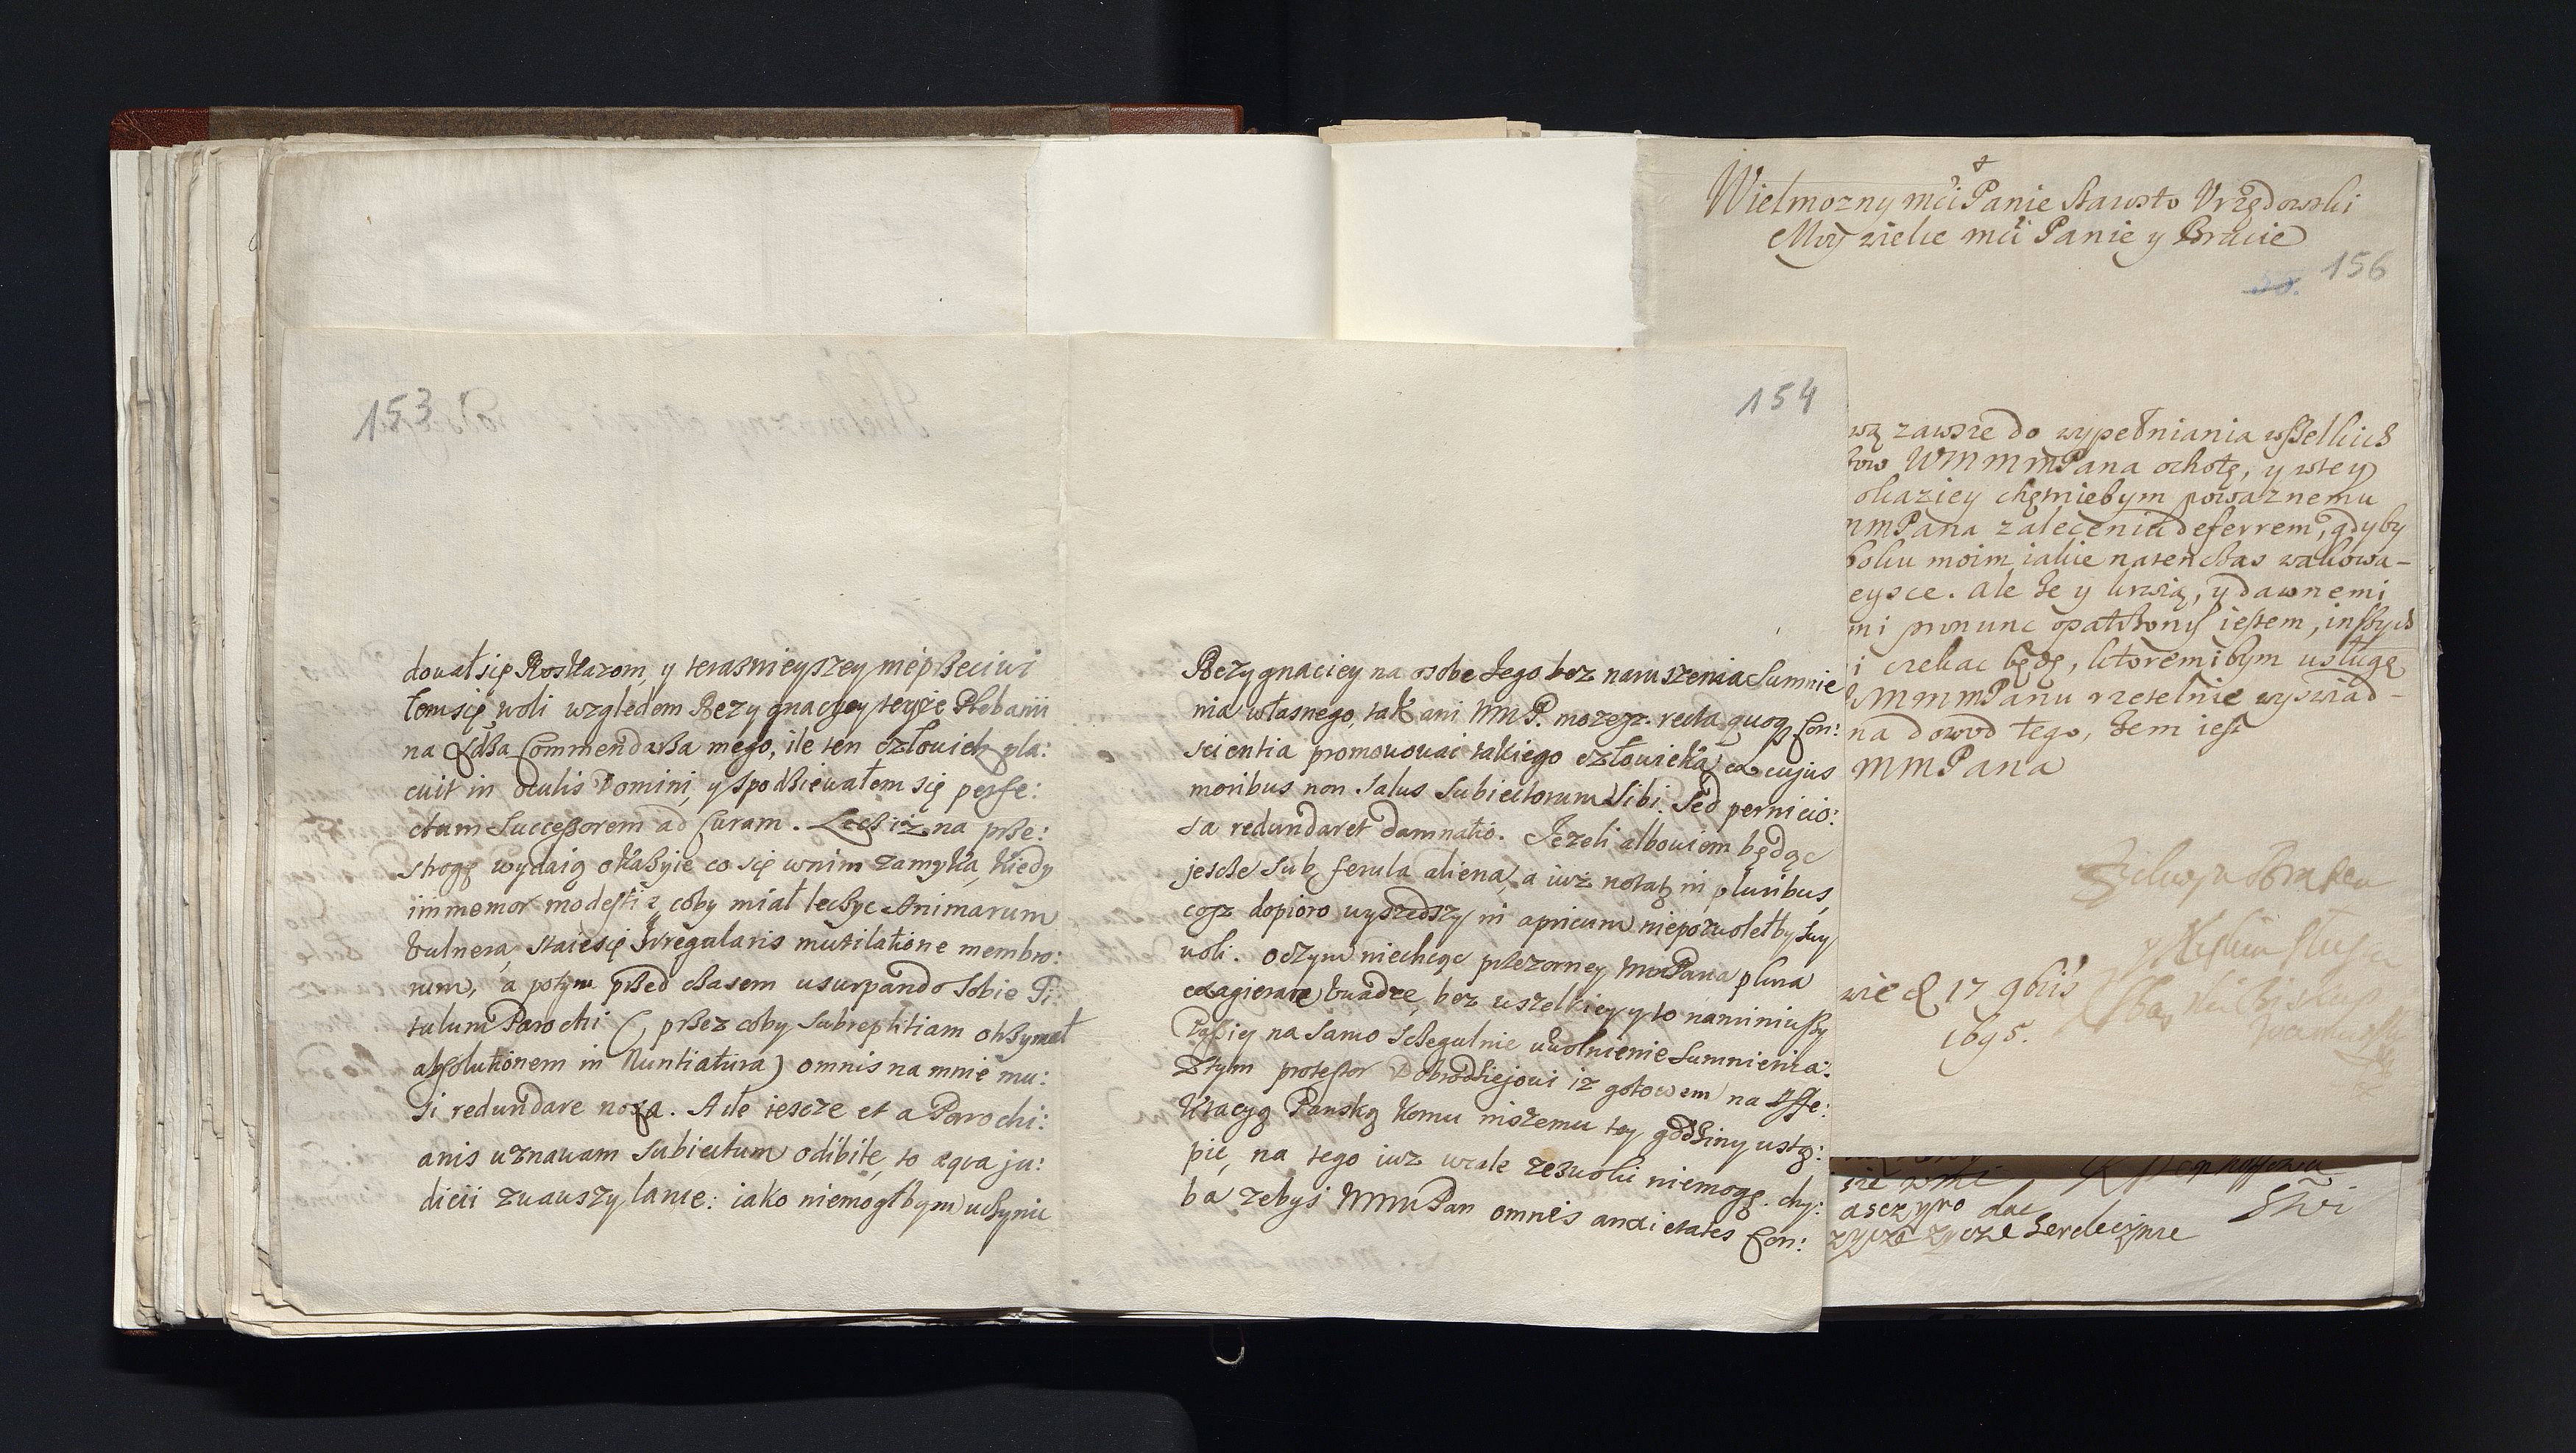 153
dował się Roskazom, y terasnieyszey nieprzeciwi
łem się woli względem Rezygnacyey teyże Plebanii
na Xdza Commendarza mego, ile ten człowiek pla:
cuit in oculis Domini, y spodziewałem się perfe:
ctum Successorem ad Curam. Lecz iż na prze:
strogę wydaią okazyie co się wnim zamyka, kiedy
immemor modestiæ coby miał leczyc Animarum
Vulnera, staie się Irregularis mutilatione membro:
rum, a potym przed czasem usurpando Sobie Ti:
tulum Parochi (przez coby Subreptitiam otrzymał
absolutionem in Nuntiatura) omnis na mnie mu:
si redundare noxa. A ile iescze et a Parochi:
anis uznawam Subiectum odibile, to æqua ju:
dicii zwauszy lance: iako niemogłbym uczynic
154
Rezygnaciey na osobe Jego bez naruszenia Sumnie
nia własnego, tak ani WMP. możesz recta quoq Con:
scientia promowowai takiego człowieka ex cujus
moribus non Salus Subiectorum Sibi Sed pernicio:
sa redundaret damnatio. Jezeli albowiem będąc
jescze Sub ferula aliena, a iuż notatz in pluribus,
cosz dopioro wyszedszy in apricum niepozwoletby Swy
woli. Oczym niechcąc przezorney WMPana plura
exagierare uwadze, bez wszelkiey y to naminiuszy
na Samo Sczegulnie uwolnienie Sumnienia:
Ztym protestor Dobrodziejowi iż gotowem na
Pańską komu inszemu tey godziny ustą:
pić, na tego iuż wcale zezwolić niemogę. chy:
ba zebyś WMMPan omnes anxietates Con:
Wielmozny mći Panie Starosto Urzędowski
Moy wielce mći Panie y Bracie
156
wą zawsze do wypełniania wszelkich
ow WMMMPana ochotę, y wtey
okaziey chętniebym powaznemu
mmPana zaleceniu deferrem, gdyby
boku moim iakie natenczas wakowa-
eysce. Ale że y krwią, y dawnemi
mi pronunc opatrzony iestem, inszych
i czekac będę, ktoremibym usługę
MmmPanu rzetelnie wyswiad-
na dowod tego, żem iest
MMPana
y
wie d 17 9bris
1695.
sie
asczyro dac
zycze Serdecznie